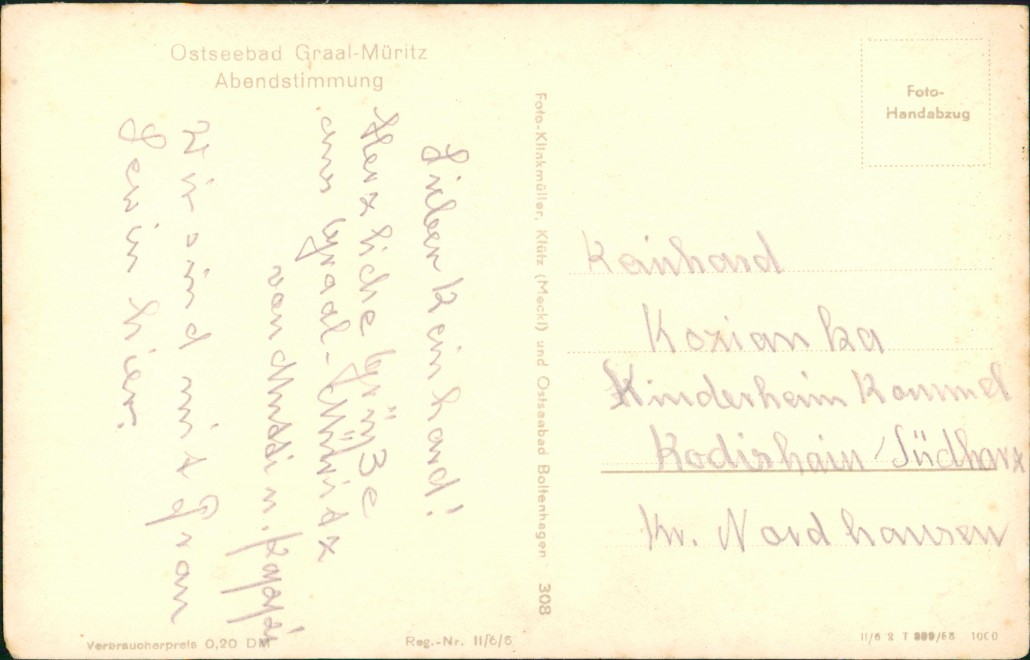 Ostseebad Graal-Müritz
Abendstimmung
Lieber Reinhard!
Herzliche Grüße
aus Graal-Müritz
von Mutti u. Pappi
Wir sind mit Frau
hier.
Verbraucherpreis 0,20 DM
Reg.-Nr. II/6/6
Foto-Klinkmüller, Klütz (Meckl) und Ostseebad Boltenhagen 308
Foto-
Handabzug
Reinhard
Kozianka
Kinderheim
Rodishain/Südharz
Kr. Nordhausen